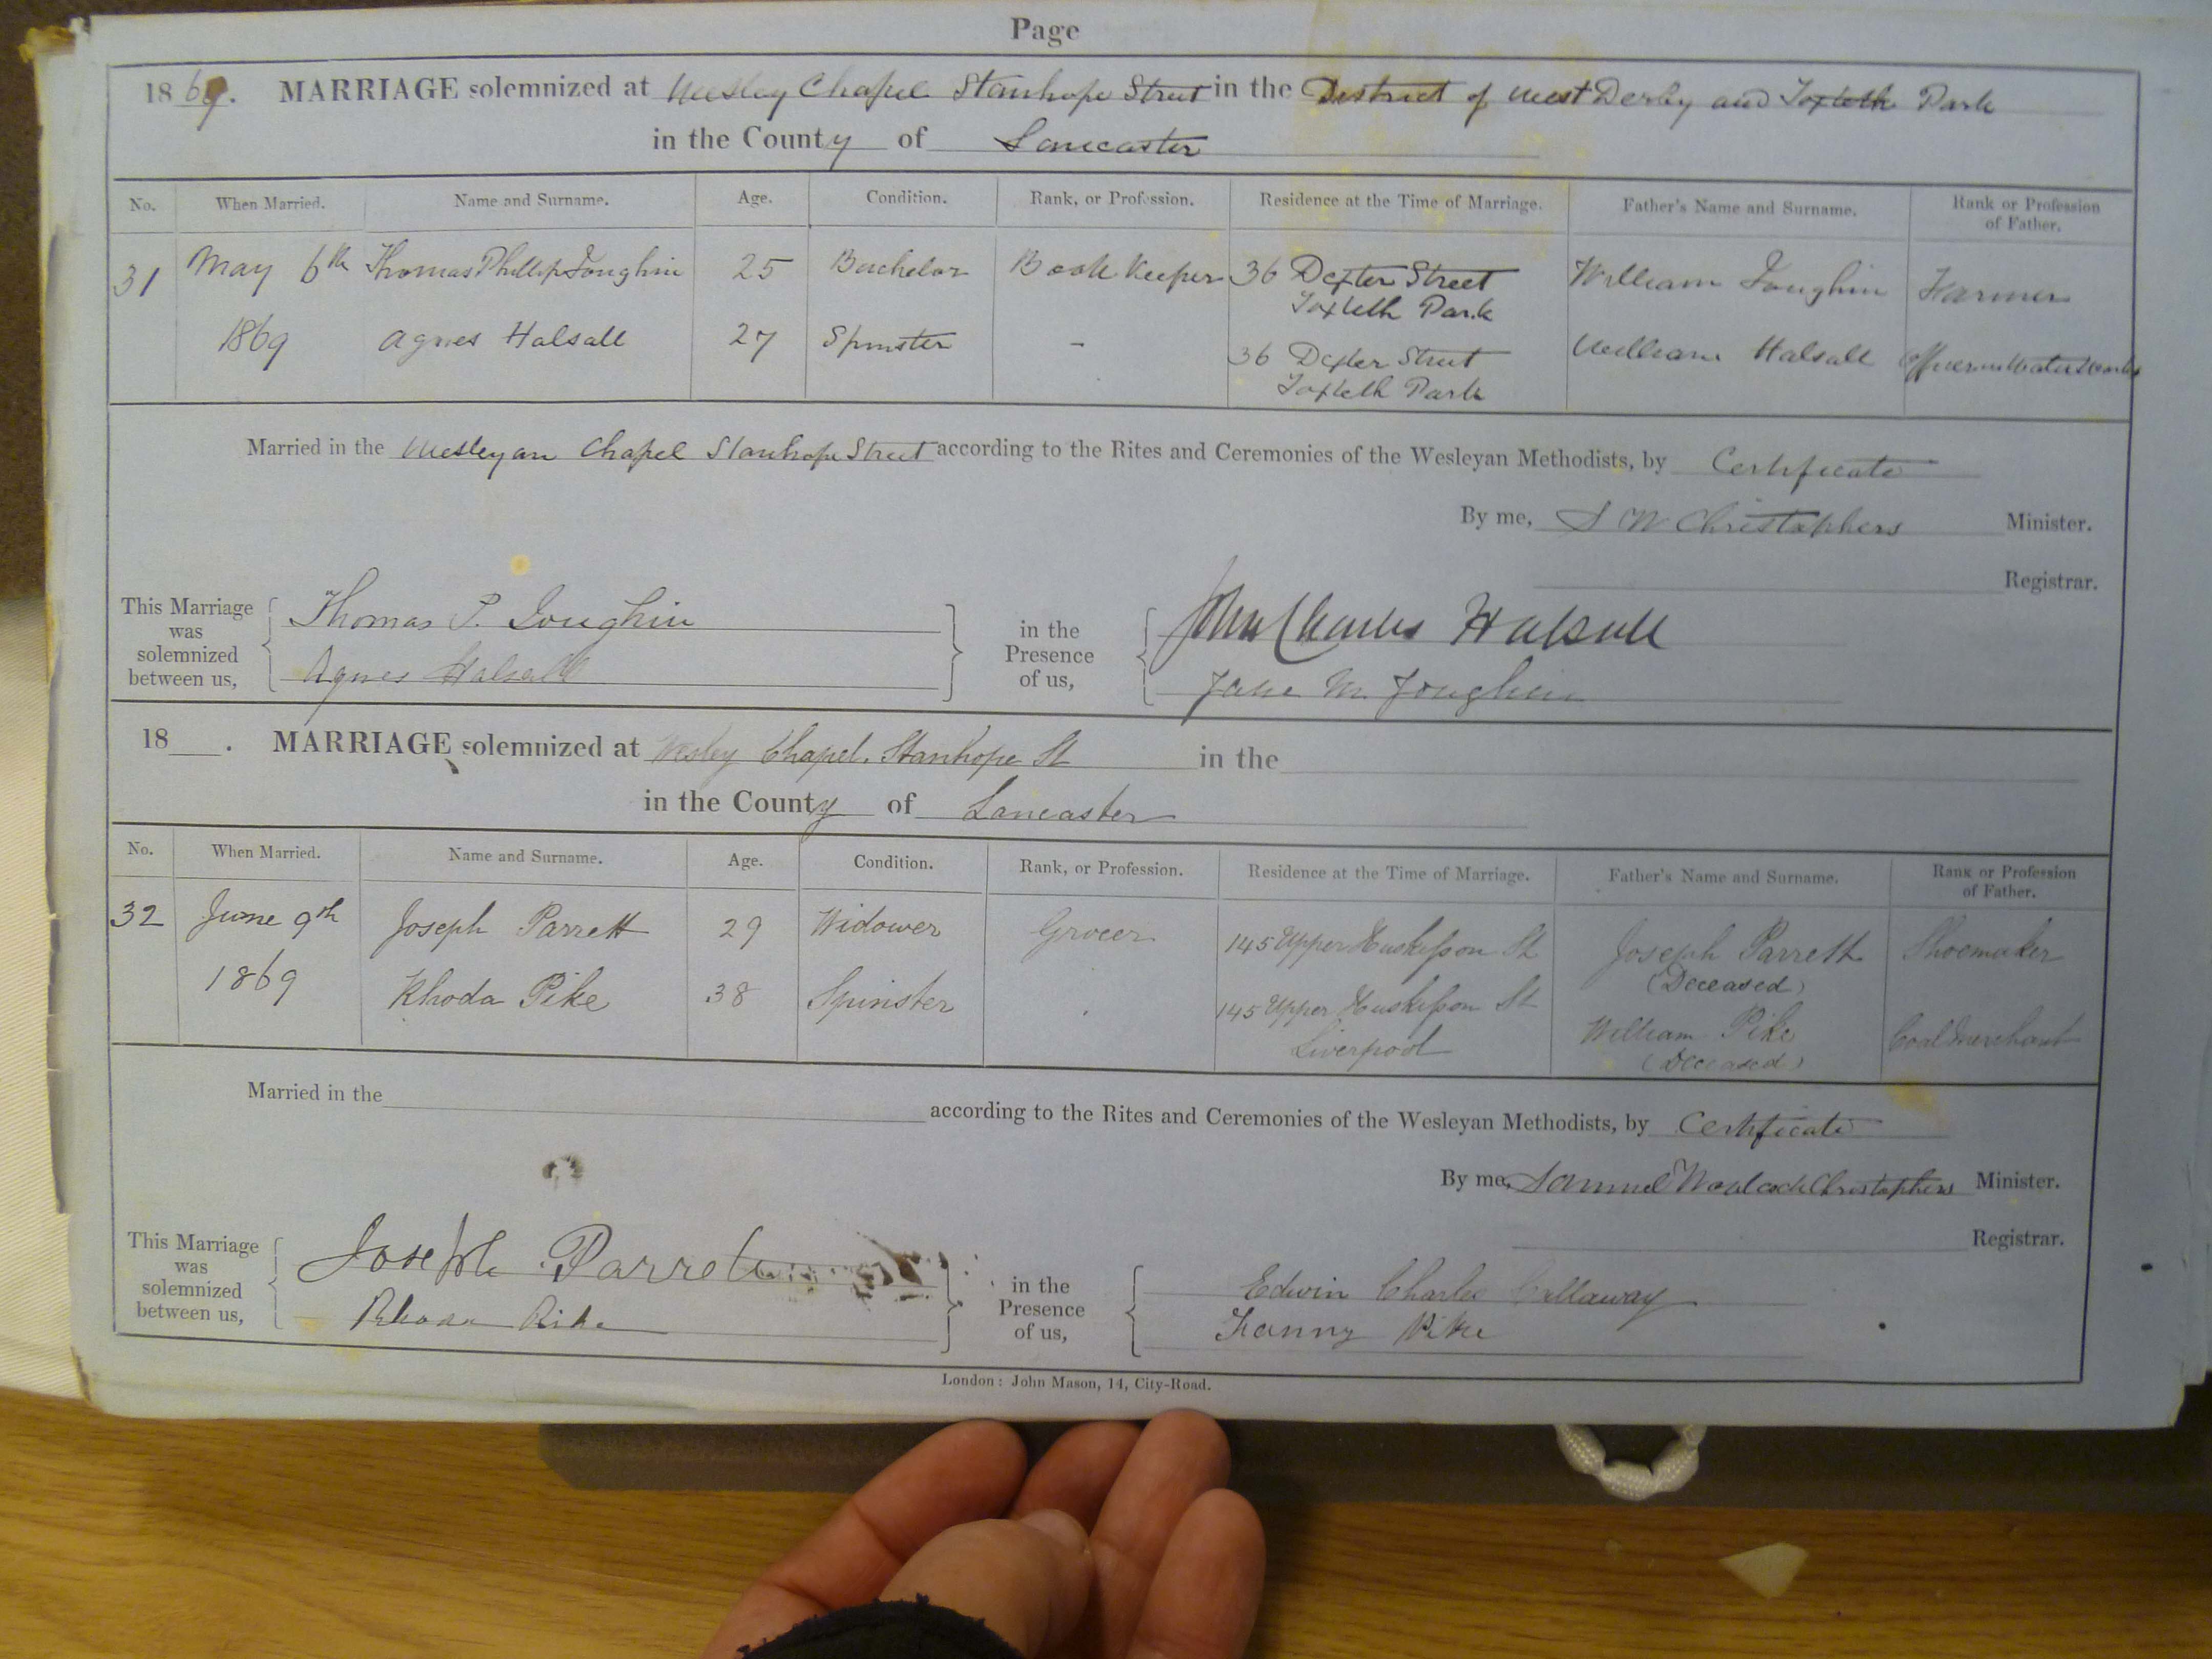 Page
1869. MARRIAGE solemnized at Wesley Chapel Stanhope Street in the District of West Derby and Toxteth Park
in the County of Lancaster
No. When Married. Name and Surname. Age. Condition. Rank, or Profession. Residence at the Time of Marriage. Father's Name and Surname. Rank or Profession of Father.
31 May 6th Thomas Phillip Joughin 25 Bachelor Book Keeper 36 Dexter Street Toxteth Park William Joughin Farmer
1869 Agnes Halsall 27 Spinster - 36 Dexter Street Toxteth Park William Halsall Officer in Water Works
Married in the Wesleyan Chapel Stanhope Street according to the Rites and Ceremonies of the Wesleyan Methodists, by Certificate
By me, S W Christophers Minister.
Registrar.
This Marriage was solemnized between us,
Thomas P. Joughin
Agnes Halsall
in the Presence of us,
John Charles Halsall
Jane M. Joughin
18 . MARRIAGE solemnized at Wesley Chapel. Stanhope St in the
in the County of Lancaster
No. When Married. Name and Surname. Age. Condition. Rank, or Profession. Residence at the Time of Marriage. Father's Name and Surname. Rank or Profession of Father.
32 June 9th Joseph Parrett 29 Widower Grocer 145 Upper Huskisson St Joseph Parrett (Deceased) Shoemaker
1869 Rhoda Pike 38 Spinster 145 Upper Huskisson St Liverpool William Pike (Deceased) Coal Merchant
Married in the according to the Rites and Ceremonies of the Wesleyan Methodists, by Certificate
By me, Samuel Christophers Minister.
Registrar.
This Marriage was solemnized between us,
Joseph Parrett
Rhoda Pike
in the Presence of us,
Edwin Charles Callaway
Fanny Pike
London: John Mason, 14, City-Road.